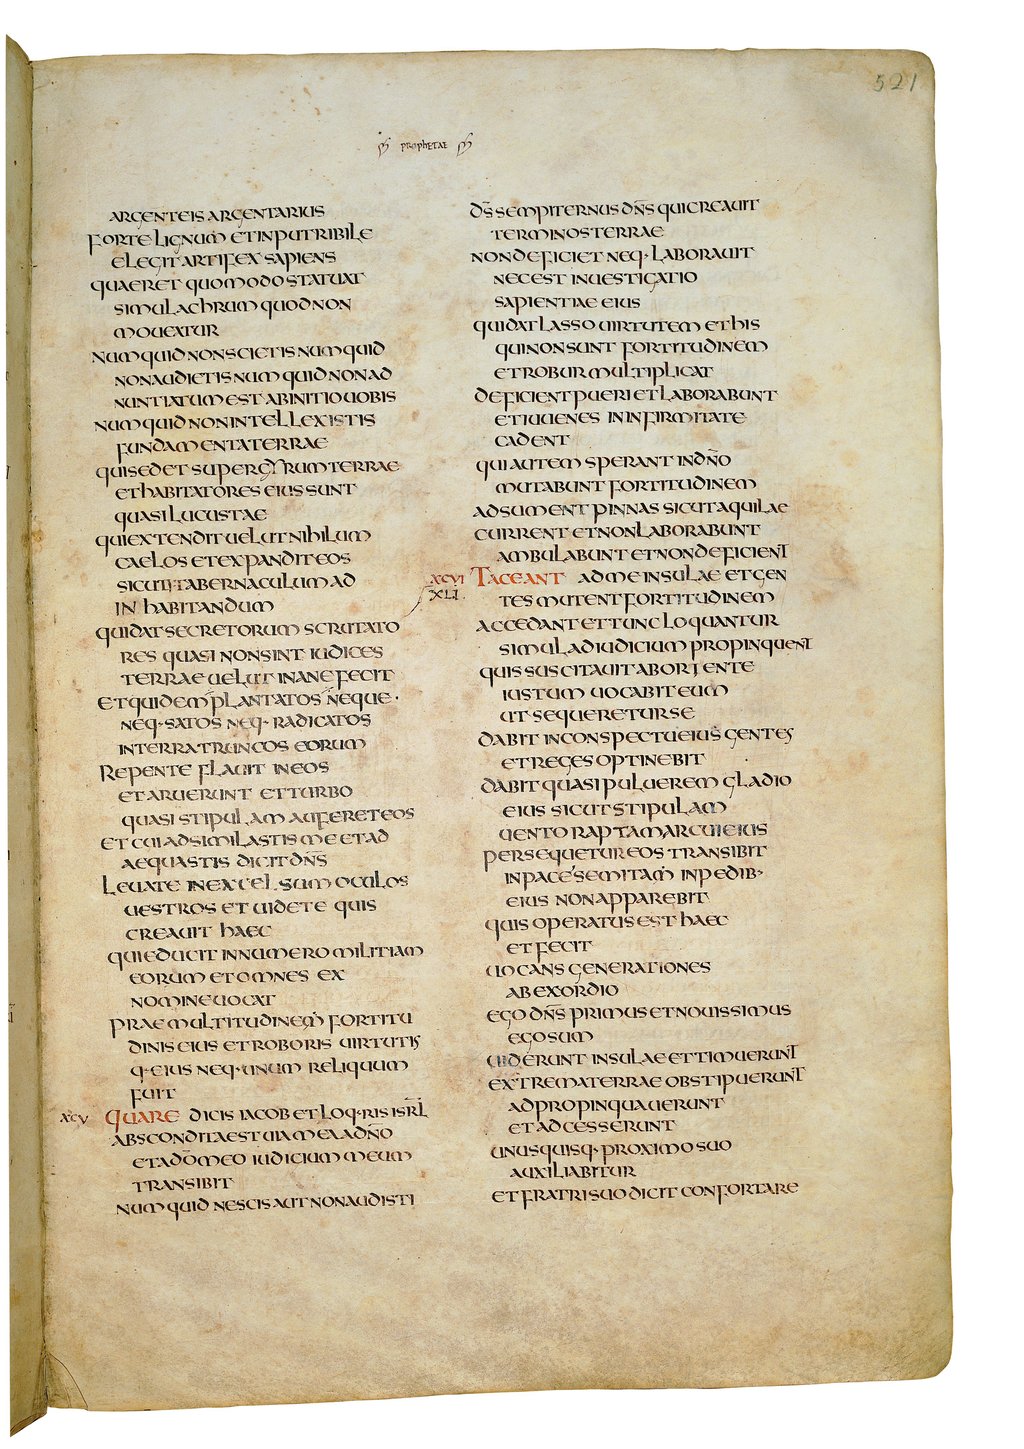 521
prophetae
ARGENTEIS ARGENTARIUS
FORTE LIGNUM ET INPUTRIBILE
ELEGIT ARTIFEX SAPIENS
QUAERET QUOMODO STATUAT
SIMULACHRUM QUOD NON
MOUEATUR
NUMQUID NON SCIETIS NUMQUID
NON AUDIETIS NUMQUID NON AD
NUNTIATUM EST AB INITIO UOBIS
NUMQUID NON INTELLEXISTIS
FUNDAMENTA TERRAE
QUI SEDET SUPER GYRUM TERRAE
ET HABITATORES EIUS SUNT
QUASI LUCUSTAE
QUI EXTENDIT UELUT NIHILUM
CAELOS ET EXPANDIT EOS
SICUT TABERNACULUM AD
IN HABITANDUM
QUI DAT SECRETORUM SCRUTATO
RES QUASI NON SINT IUDICES
TERRAE UELUT INANE FECIT
ET QUIDEM PLANTATOS NEQUE·
NEQ· SATOS NEQ· RADICATOS
IN TERRA TRUNCOS EORUM
REPENTE FLAUIT IN EOS
ET ARUERUNT ET TURBO
QUASI STIPULAM AUFERET EOS
ET CUI ADSIMILASTIS ME ET AD
AEQUASTIS DICIT DN̄S
LEUATE IN EXCELSUM OCULOS
UESTROS ET UIDETE QUIS
CREAUIT HAEC
QUI EDUCIT IN NUMERO MILITIAM
EORUM ET OMNES EX
NOMINE UOCAT
PRAE MULTITUDINEM FORTITU
DINIS EIUS ET ROBORIS UIRTUTIS
Q· EIUS NEQ· UNUM RELIQUUM
FUIT
XCV QUARE DICIS IACOB ET LOQ·RIS ISRL̄
ABSCONDITA EST UIA MEA A DN̄O
ET A DŌ MEO IUDICIUM MEUM
TRANSIBIT
NUMQUID NESCIS AUT NON AUDISTI
DS̄ SEMPITERNUS DN̄S QUI CREAUIT
TERMINOS TERRAE
NON DEFICIET NEQ· LABORAUIT
NEC EST INUESTIGATIO
SAPIENTIAE EIUS
QUI DAT LASSO UIRTUTEM ET HIS
QUI NON SUNT FORTITUDINEM
ET ROBUR MULTIPLICAT
DEFICIENT PUERI ET LABORABUNT
ET IUUENES IN INFIRMITATE
CADENT
QUI AUTEM SPERANT IN DN̄O
MUTABUNT FORTITUDINEM
ADSUMENT PINNAS SICUT AQUILAE
CURRENT ET NON LABORABUNT
AMBULABUNT ET NON DEFICIENT
XCVI TACEANT AD ME INSULAE ET GEN
XLI. TES MUTENT FORTITUDINEM
ACCEDANT ET TUNC LOQUANTUR
SIMUL AD IUDICIUM PROPINQUENT
QUIS SUSCITAUIT AB ORIENTE
IUSTUM UOCABIT EUM
UT SEQUERETUR SE
DABIT IN CONSPECTU EIUS GENTES
ET REGES OPTINEBIT
DABIT QUASI PULUEREM GLADIO
EIUS SICUT STIPULAM
UENTO RAPTAM ARCUI EIUS
PERSEQUETUR EOS TRANSIBIT
IN PACE SEMITAM IN PEDIB·
EIUS NON APPAREBIT
QUIS OPERATUS EST HAEC
ET FECIT
UOCANS GENERATIONES
AB EXORDIO
EGO DN̄S PRIMUS ET NOUISSIMUS
EGO SUM
UIDERUNT INSULAE ET TIMUERUNT
EXTREMA TERRAE OBSTIPUERUNT
ADPROPINQUAUERUNT
ET ADCESSERUNT
UNUSQUISQ· PROXIMO SUO
AUXILIABITUR
ET FRATRI SUO DICIT CONFORTARE